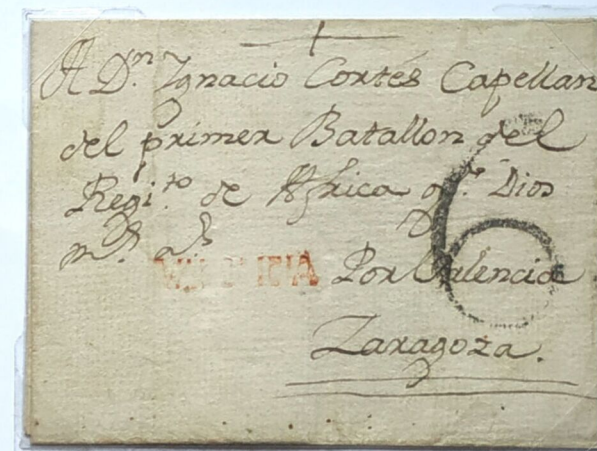 A Dⁿ. Ygnacio Cortés Capellan
del primer Batallon del
Regi.ᵗᵒ de Africa q.ᵉ Dios
m.ˢ a.ˢ
Por Valencia
6
Zaragoza.